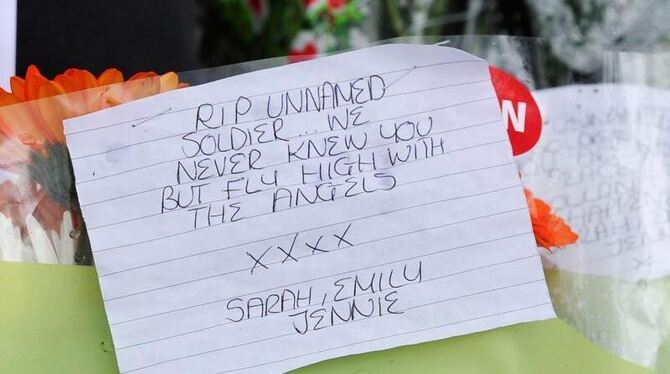 RIP UNNAMED
SOLDIER... WE
NEVER KNEW YOU
BUT FLY HIGH WITH
THE ANGELS
XXXX
SARAH, EMILY
JENNIE